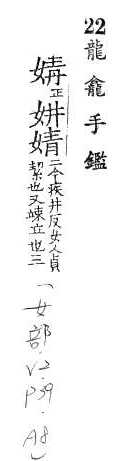 22龍龕手鑑
媾正妌婧二今疾井反女人貞
絜也又竦立也三
(女部.V2.P39.A8)